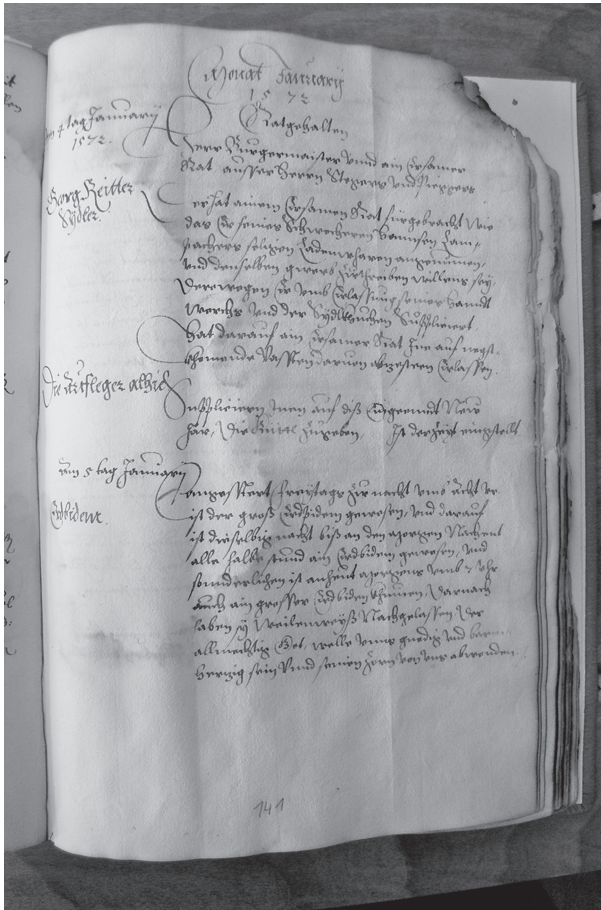 Monat Januarÿ
1572
Am 4 tag Januarÿ
1572.
Rat gehalten
Herr Burgermaister vnnd ain Ersamer
Rat ausser Herrn
Georg Reitter
Sÿdler.
Er hat ainem Ersamen Rat fürgebracht wie
das Er seines Schwechern Hannsen Lam-
pachers seligen Ladenwharen angenomen,
vnd denselben gwerb zutreiben willens seÿ,
Derwegen Er vmb Erlassung seiner Handt
werchs vnd der Sÿdlkuchen Suppliciert
hat darauf ain Ersamer Rat Ine auf negst
khomende Vassten daruon abzesteen Erlassen.
Die alhie
Supplicieren Inen auf diß Eingeendt New
Jar, die zugeben, Ist derzeit eingestellt
Am 5 tag Januarÿ
Erdbidem.
Freÿtags zu nacht vmb Acht vr
ist der groß Erdbidem gewesen, vnd darauf
ist dieselbig nacht biß an den morgen Nachent
alle halbe stund ain Erdbidem gewesen, vnd
sonderlichen ist anheut morgens vmb 7 Uhr
auch ain grosser Erdbidem khumen, Darnach
haben sÿ Weilenweÿß Nachgelassen, Der
allmechtig Got, welle vnns gnedig vnd barm
hertzig sein vnnd seinen Zorn von vns abwenden.
141